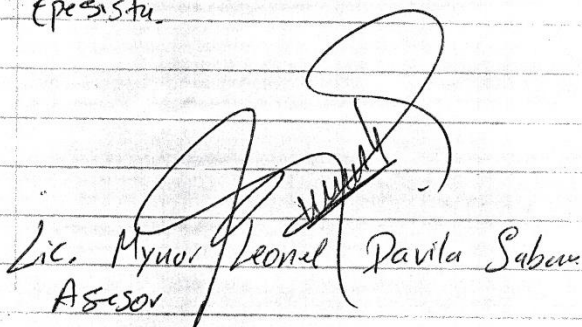 Epesista.
Lic. Mynor Leonel Davila
Asesor